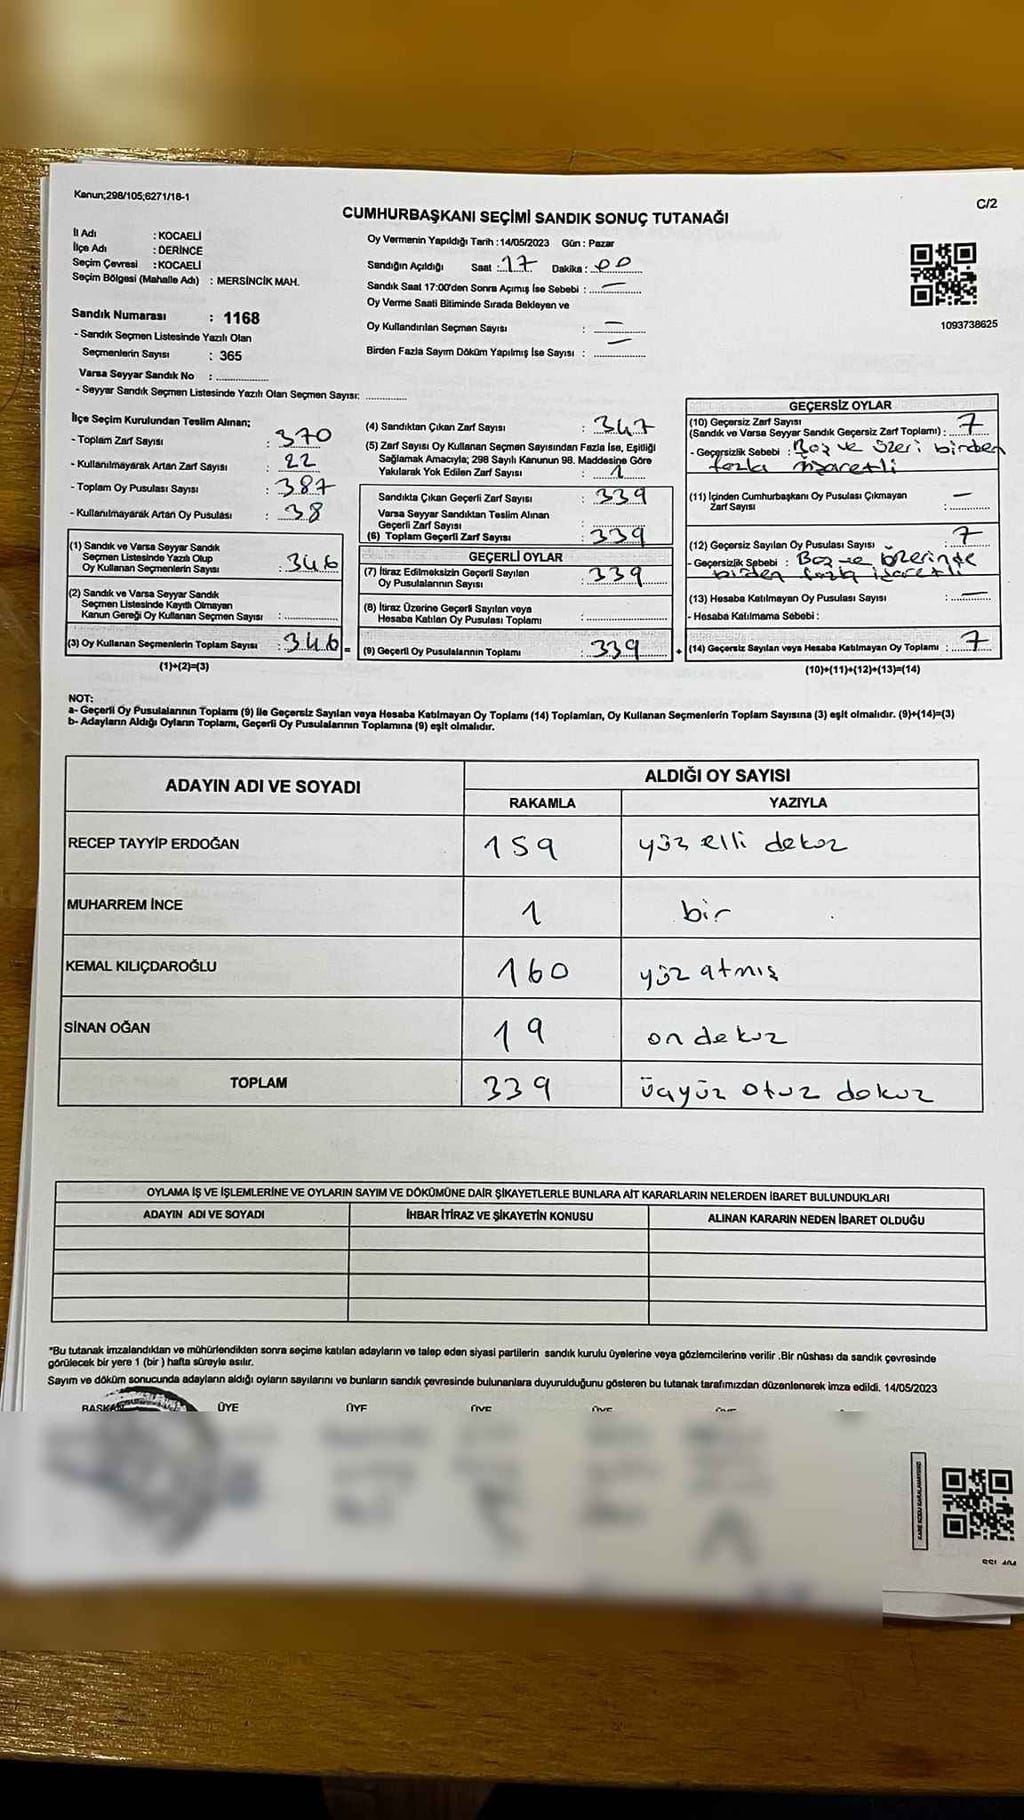 Kanun;298/105;6271/18-1
C/2
CUMHURBAŞKANI SEÇİMİ SANDIK SONUÇ TUTANAĞI
İl Adı : KOCAELİ
İlçe Adı : DERİNCE
Seçim Çevresi : KOCAELİ
Seçim Bölgesi (Mahalle Adı) : MERSİNCİK MAH.
Sandık Numarası : 1168
- Sandık Seçmen Listesinde Yazılı Olan
Seçmenlerin Sayısı : 365
Varsa Seyyar Sandık No :
- Seyyar Sandık Seçmen Listesinde Yazılı Olan Seçmen Sayısı:
Oy Vermenin Yapıldığı Tarih : 14/05/2023 Gün : Pazar
Sandığın Açıldığı Saat : 17 Dakika : 00
Sandık Saat 17:00'den Sonra Açımış İse Sebebi : —
Oy Verme Saati Bitiminde Sırada Bekleyen ve
Oy Kullandırılan Seçmen Sayısı : —
Birden Fazla Sayım Döküm Yapılmış İse Sayısı : —
1093738625
İlçe Seçim Kurulundan Teslim Alınan;
- Toplam Zarf Sayısı : 370
- Kullanılmayarak Artan Zarf Sayısı : 22
- Toplam Oy Pusulası Sayısı : 387
- Kullanılmayarak Artan Oy Pusulası : 38
(1) Sandık ve Varsa Seyyar Sandık
Seçmen Listesinde Yazılı Olup
Oy Kullanan Seçmenlerin Sayısı : 346
(2) Sandık ve Varsa Seyyar Sandık
Seçmen Listesinde Kayıtlı Olmayan
Kanun Gereği Oy Kullanan Seçmen Sayısı :
(3) Oy Kullanan Seçmenlerin Toplam Sayısı : 346 =
(1)+(2)=(3)
(4) Sandıktan Çıkan Zarf Sayısı : 347
(5) Zarf Sayısı Oy Kullanan Seçmen Sayısından Fazla İse, Eşitliği
Sağlamak Amacıyla; 298 Sayılı Kanunun 98. Maddesine Göre
Yakılarak Yok Edilen Zarf Sayısı : 1
Sandıkta Çıkan Geçerli Zarf Sayısı : 339
Varsa Seyyar Sandıktan Teslim Alınan
Geçerli Zarf Sayısı :
(6) Toplam Geçerli Zarf Sayısı : 339
GEÇERLİ OYLAR
(7) İtiraz Edilmeksizin Geçerli Sayılan
Oy Pusulalarının Sayısı : 339
(8) İtiraz Üzerine Geçerli Sayılan veya
Hesaba Katılan Oy Pusulası Toplamı :
(9) Geçerli Oy Pusulalarının Toplamı : 339 +
GEÇERSİZ OYLAR
(10) Geçersiz Zarf Sayısı
(Sandık ve Varsa Seyyar Sandık Geçersiz Zarf Toplamı) : 7
- Geçersizlik Sebebi : Boş ve üzeri birden
fazla işaretli
(11) İçinden Cumhurbaşkanı Oy Pusulası Çıkmayan
Zarf Sayısı : —
(12) Geçersiz Sayılan Oy Pusulası Sayısı : 7
- Geçersizlik Sebebi : Boş ve özerinde
birden fazla işaretli
(13) Hesaba Katılmayan Oy Pusulası Sayısı : —
- Hesaba Katılmama Sebebi :
(14) Geçersiz Sayılan veya Hesaba Katılmayan Oy Toplamı : 7
(10)+(11)+(12)+(13)=(14)
NOT:
a- Geçerli Oy Pusulalarının Toplamı (9) ile Geçersiz Sayılan veya Hesaba Katılmayan Oy Toplamı (14) Toplamları, Oy Kullanan Seçmenlerin Toplam Sayısına (3) eşit olmalıdır. (9)+(14)=(3)
b- Adayların Aldığı Oyların Toplamı, Geçerli Oy Pusulalarının Toplamına (9) eşit olmalıdır.
ADAYIN ADI VE SOYADI ALDIĞI OY SAYISI
RAKAMLA YAZIYLA
RECEP TAYYİP ERDOĞAN 159 yüz elli dekuz
MUHARREM İNCE 1 bir
KEMAL KILIÇDAROĞLU 160 yüz atmış
SİNAN OĞAN 19 on dekuz
TOPLAM 339 üçyüz otuz dokuz
OYLAMA İŞ VE İŞLEMLERİNE VE OYLARIN SAYIM VE DÖKÜMÜNE DAİR ŞİKAYETLERLE BUNLARA AİT KARARLARIN NELERDEN İBARET BULUNDUKLARI
ADAYIN ADI VE SOYADI İHBAR İTİRAZ VE ŞİKAYETİN KONUSU ALINAN KARARIN NEDEN İBARET OLDUĞU
*Bu tutanak imzalandıktan ve mühürlendikten sonra seçime katılan adayların ve talep eden siyasi partilerin sandık kurulu üyelerine veya gözlemcilerine verilir .Bir nüshası da sandık çevresinde
görülecek bir yere 1 (bir ) hafta süreyle asılır.
Sayım ve döküm sonucunda adayların aldığı oyların sayılarını ve bunların sandık çevresinde bulunanlara duyurulduğunu gösteren bu tutanak tarafımızdan düzenlenerek imza edildi. 14/05/2023
BAŞKAN ÜYE ÜYE ÜYE ÜYE ÜYE
KARE KODU KARALAMAYINIZ